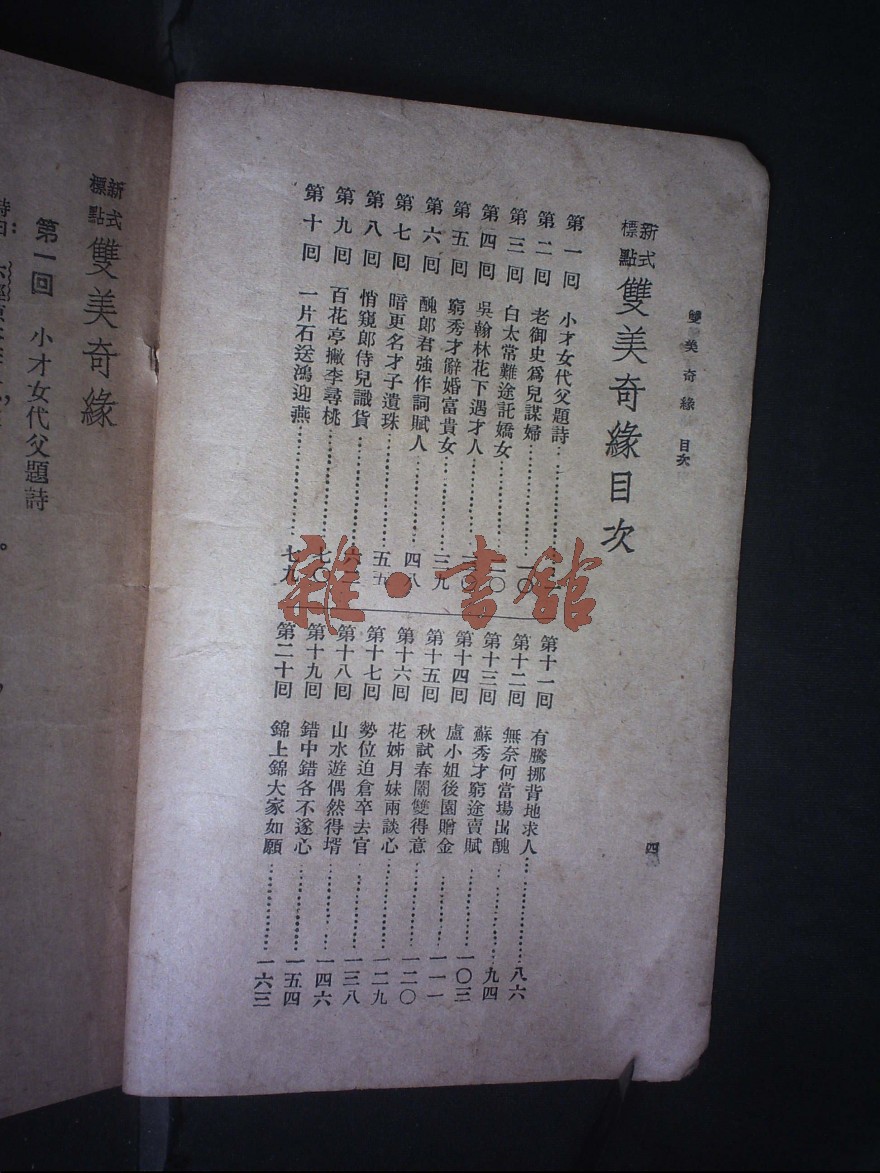 雙美奇緣 目次
四
新式標點 雙美奇緣目次
第一回 小才女代父題詩
第二回 老御史爲兒謀婦
第三回 白太常難途託嬌女
第四回 吳翰林花下遇才人
第五回 窮秀才辭婚富貴女 三九
第六回 醜郎君強作詞賦人 四八
第七回 暗更名才子遺珠 五五
第八回 悄窺郎侍兒識貨
第九回 百花亭撇李尋桃 七〇
第十回 一片石送鴻迎燕 七九
第十一回 有騰挪背地求人 八六
第十二回 無奈何當場出醜 九四
第十三回 蘇秀才窮途賣賦 一〇三
第十四回 盧小姐後園贈金 一一一
第十五回 秋試春闈雙得意 一二〇
第十六回 花姊月妹兩談心 一二九
第十七回 勢位迫倉卒去官 一三八
第十八回 山水遊偶然得壻 一四六
第十九回 錯中錯各不遂心 一五四
第二十回 錦上錦大家如願 一六三
雜·書館
新式標點 雙美奇緣
第一回 小才女代父題詩